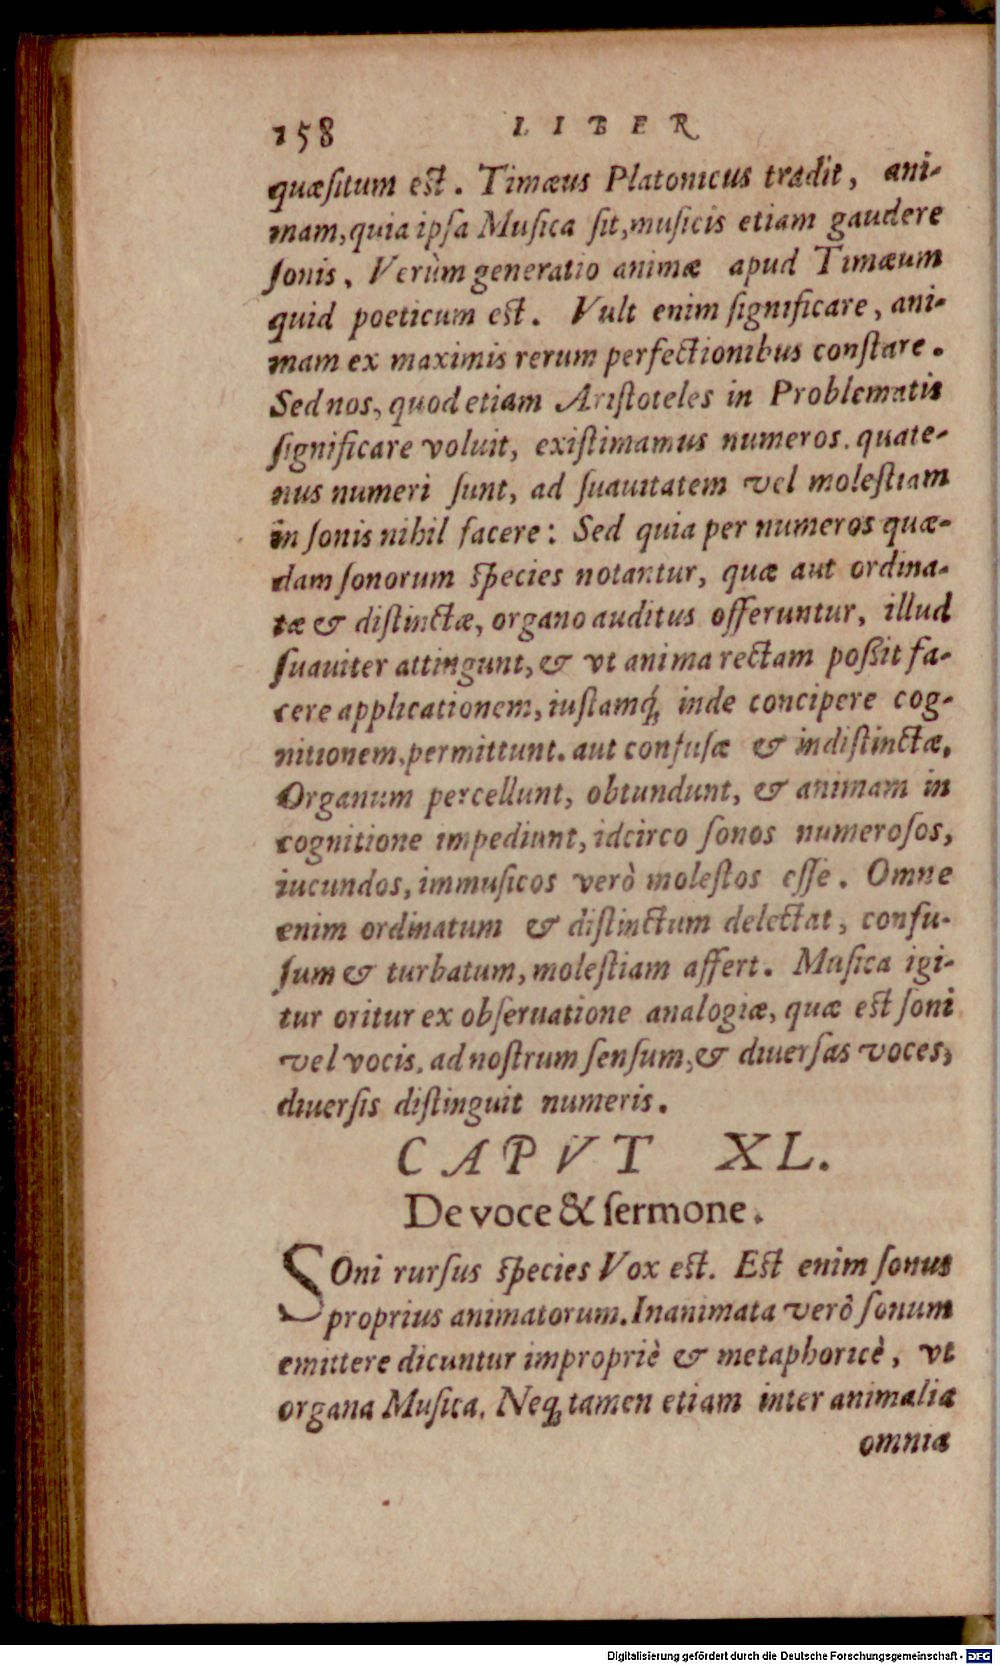 158 LIBER
quæſitum eſt. Timæus Platonicus tradit, ani-
mam, quia ipſa Muſica ſit, muſicis etiam gaudere
ſonis, Verùm generatio animæ apud Timæum
quid poeticum eſt. Vult enim ſignificare, ani-
mam ex maximis rerum perfectionibus conſtare.
Sed nos, quod etiam Ariſtoteles in Problematis
ſignificare voluit, exiſtimamus numeros. quate-
nus numeri ſunt, ad ſuauitatem vel moleſtiam
in ſonis nihil facere: Sed quia per numeros quæ-
dam ſonorum ſpecies notantur, quæ aut ordina-
tæ & diſtinctæ, organo auditus offeruntur, illud
ſuauiter attingunt, & vt anima rectam poßit fa-
cere applicationem, iuſtamq́; inde concipere cog-
nitionem, permittunt. aut confuſæ & indiſtinctæ,
Organum percellunt, obtundunt, & animam in
cognitione impediunt, idcirco ſonos numeroſos,
iucundos, immuſicos verò moleſtos eſſe. Omne
enim ordinatum & diſtinctum delectat, confu-
ſum & turbatum, moleſtiam affert. Muſica igi-
tur oritur ex obſeruatione analogiæ, quæ eſt ſoni
vel vocis, ad noſtrum ſenſum, & diuerſas voces,
diuerſis diſtinguit numeris.
CAPVT XL.
De voce & ſermone.
SOni rurſus ſpecies Vox eſt. Eſt enim ſonus
proprius animatorum. Inanimata verò ſonum
emittere dicuntur impropriè & metaphoricè, vt
organa Muſica. Neq; tamen etiam inter animalia
omnia
Digitalisierung gefördert durch die Deutsche Forschungsgemeinschaft - DFG